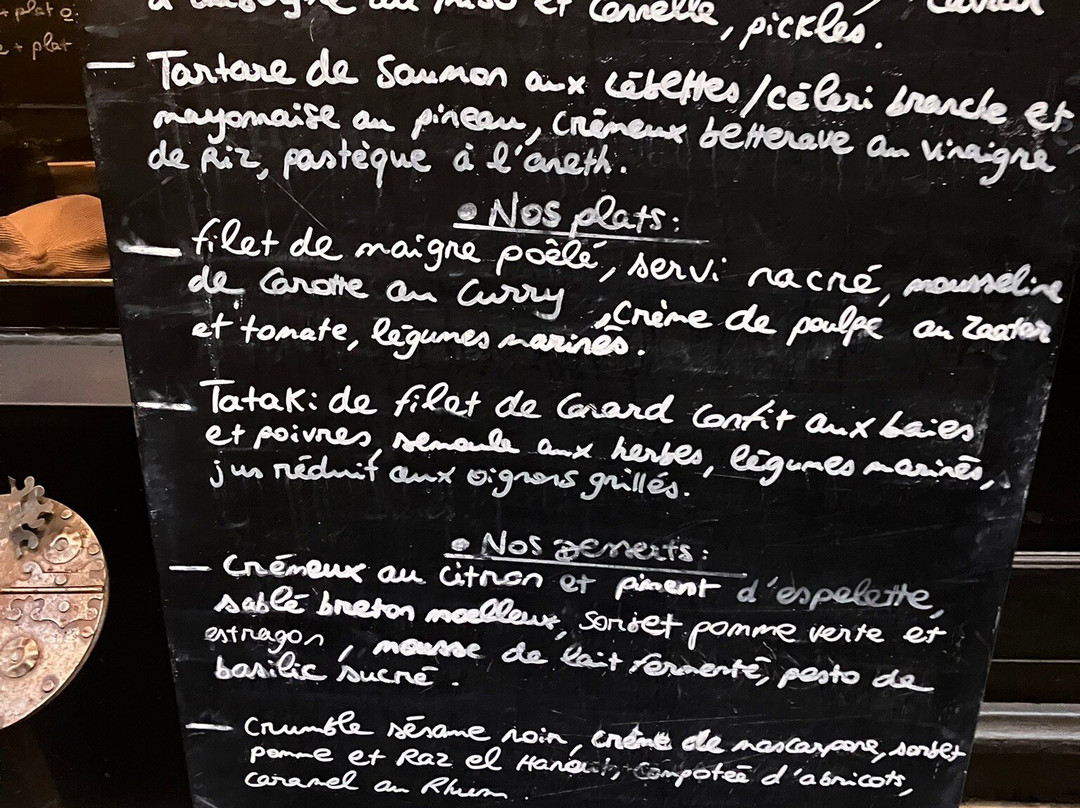 + plat
+ plat
au miso et Cannelle, pickles.
— Tartare de Saumon aux cébettes/céleri branche et
mayonnaise au pineau, crémeux betterave au vinaigre
de Riz, pastèque à l'aneth.
• Nos plats:
— filet de maigre poêlé, servi nacré, mousseline
de Carotte au Curry, Crème de poulpe au Zaatar
et tomate, légumes marinés.
— Tataki: de filet de Canard confit aux baies
et poivres, semoule aux herbes, légumes marinés,
jus réduit aux oignons grillés.
• Nos desserts:
— Crémeux au citron et piment d'espelette,
sablé breton moelleux, sorbet pomme verte et
estragon, mousse de lait fermenté, pesto de
basilic sucré.
— Crumble sésame noir, crème de mascarpone, sorbet
pomme et Raz el Hanout, Compotée d'abricots,
caramel au Rhum.